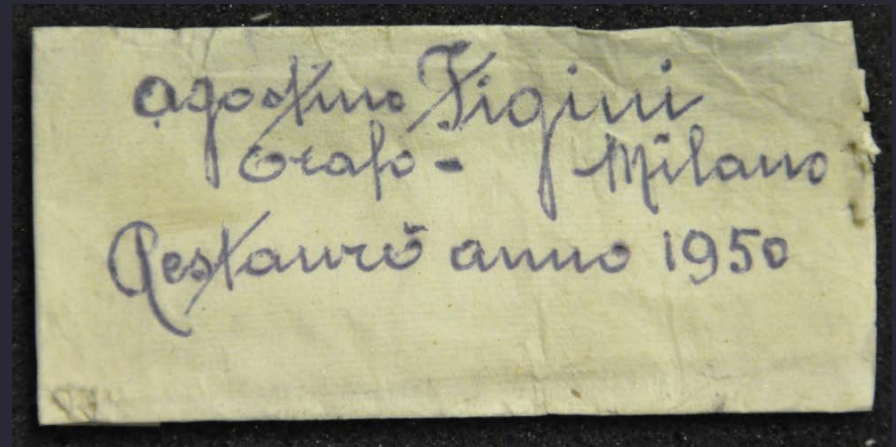 Agostino Figini
Orafo - Milano
Restaurò anno 1950